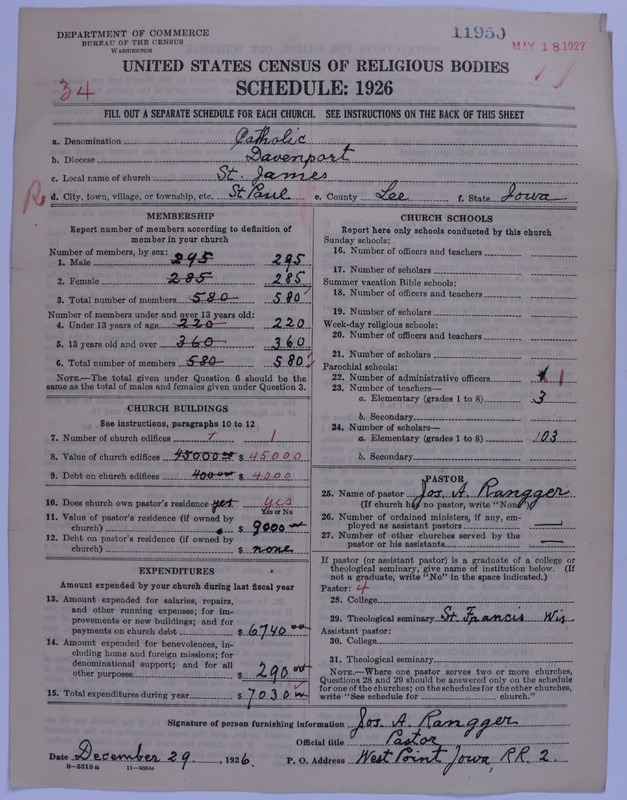 DEPARTMENT OF COMMERCE
BUREAU OF THE CENSUS
WASHINGTON
11950
MAY 18 1927
UNITED STATES CENSUS OF RELIGIOUS BODIES
34
SCHEDULE: 1926
FILL OUT A SEPARATE SCHEDULE FOR EACH CHURCH. SEE INSTRUCTIONS ON THE BACK OF THIS SHEET
a. Denomination Catholic
b. Diocese Davenport
c. Local name of church St. James
R d. City, town, village, or township, etc. St Paul e. County Lee f. State Iowa
MEMBERSHIP
Report number of members according to definition of
member in your church
Number of members, by sex:
1. Male 295 295
2. Female 285 285
3. Total number of members 580 580
Number of members under and over 13 years old:
4. Under 13 years of age 220 220
5. 13 years old and over 360 360
6. Total number of members 580 580
NOTE.—The total given under Question 6 should be the
same as the total of males and females given under Question 3.
CHURCH BUILDINGS
See instructions, paragraphs 10 to 12
7. Number of church edifices 1 1
8. Value of church edifices 45000 00 $ 45000
9. Debt on church edifices 400 00 $ 4000
10. Does church own pastor's residence yes yes
Yes or No
11. Value of pastor's residence (if owned by
church) $ 9000 00
12. Debt on pastor's residence (if owned by
church) $ none
EXPENDITURES
Amount expended by your church during last fiscal year
13. Amount expended for salaries, repairs,
and other running expenses; for im-
provements or new buildings; and for
payments on church debt $ 6740 00
14. Amount expended for benevolences, in-
cluding home and foreign missions; for
denominational support; and for all
other purposes $ 290 00
15. Total expenditures during year $ 7030 00
CHURCH SCHOOLS
Report here only schools conducted by this church
Sunday schools:
16. Number of officers and teachers
17. Number of scholars
Summer vacation Bible schools:
18. Number of officers and teachers
19. Number of scholars
Week-day religious schools:
20. Number of officers and teachers
21. Number of scholars
Parochial schools:
22. Number of administrative officers 1
23. Number of teachers—
a. Elementary (grades 1 to 8) 3
b. Secondary
24. Number of scholars—
a. Elementary (grades 1 to 8) 103
b. Secondary
PASTOR
25. Name of pastor Jos. A. Rangger
(If church has no pastor, write "None")
26. Number of ordained ministers, if any, em-
ployed as assistant pastors —
27. Number of other churches served by the
pastor or his assistants —
If pastor (or assistant pastor) is a graduate of a college or
theological seminary, give name of institution below. (If
not a graduate, write "No" in the space indicated.)
Pastor: 4
28. College
29. Theological seminary St. Francis Wis.
Assistant pastor:
30. College
31. Theological seminary
NOTE.—Where one pastor serves two or more churches,
Questions 28 and 29 should be answered only on the schedule
for one of the churches; on the schedules for the other churches,
write "See schedule for church."
Signature of person furnishing information Jos. A. Rangger
Official title Pastor
Date December 29, 1926. P. O. Address West Point Iowa, R.R. 2.
8—5318 a